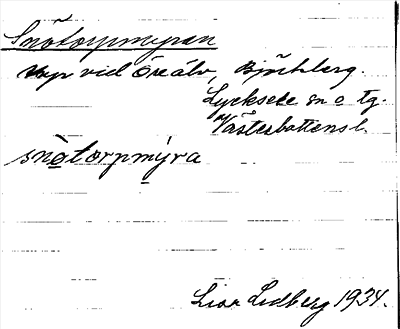 Snötorpmyran
Myr vid Öreälv, Björkberg.
Lycksele sn o tg.
Västerbottensl.
snötorpmýra
Lisa Lidberg 1934.